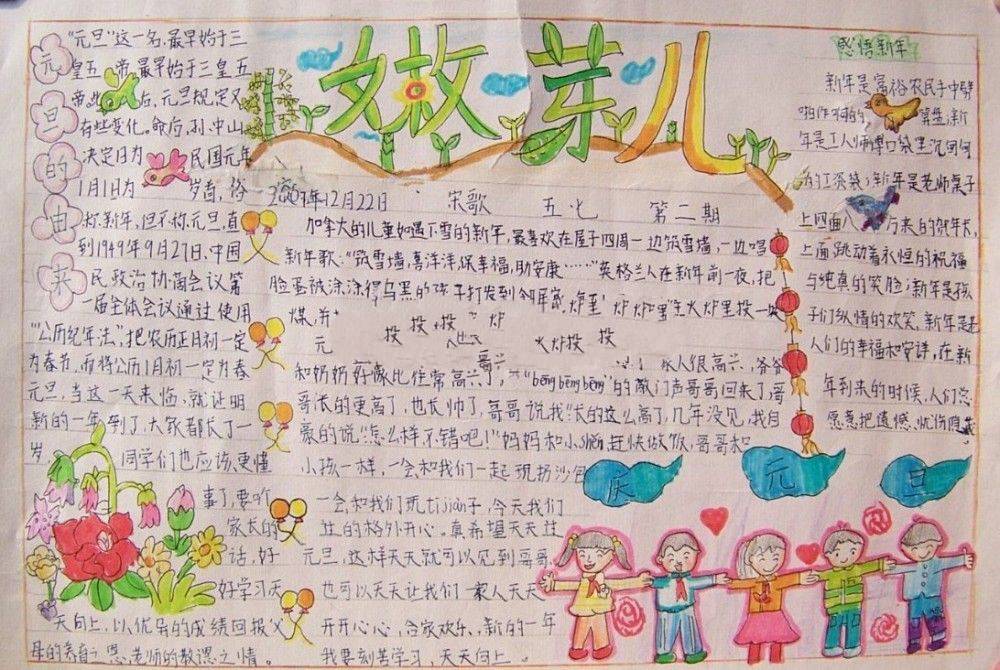 嫩芽儿
2009年12月22日 宋歌 五·七 第二期
元旦的由来
"元旦"这一名,最早始于三
皇五帝,最早始于三皇五
后,元旦规定又
有些变化。命后,孙中山
决定日为 民国元年
1月1日为 岁首,俗
称新年,但不称元旦,直
到1949年9月27日,中国
民政治协商会议第
一届全体会议通过使用
"公历纪年法",把农历正月初一定
为春节,而将公历1月初一定为春
元旦,当这一天来临,就证明
新的一年到了,大家都长了一
岁 同学们也应该更懂
事了,要听
家长的
话,好
好学习天
天向上,以优异的成绩回报父
母的养育之恩老师的教恩之情。
加拿大的儿童如遇下雪的新年,最喜欢在屋子四周一边筑雪墙,一边唱
新年歌:"筑雪墙,喜洋洋,保幸福,助安康……"英格兰人在新年前一夜,把
脸蛋被涂涂得乌黑的孩子打发到邻家,
煤,并
投 投 投 炉
元 火炉投 投
家人很高兴,爷爷
和奶奶好像比往常高兴了,"bēng bēng bēng"的敲门声哥哥回来了,哥
哥长的更高了,也长帅了,哥哥说我"长的这么高了,几年没见,我自
豪的说"怎么样不错吧!"妈妈和小shěn赶快做饭,哥哥和
小孩一样,一会和我们一起玩扔沙包
一会和我们玩tī jiàn子,今天我们
过的格外开心。真希望天天过
元旦,这样天天就可以见到哥哥
也可以天天让我们一家人天天
开开心心,合家欢乐、新的一年
我要刻苦学习,天天向上。
感悟新年
新年是富裕农民手中噼
啪作响的 算盘;新
年是工人们
的工资袋;新年是老师桌子
上四面八方来的贺年卡,
上面跳动着永恒的祝福
与纯真的笑脸;新年是孩
子们纵情的欢笑,新年是
人们的幸福和安详,在新
年到来的时候,人们总
愿意把遗憾、忧伤隐藏
庆元旦